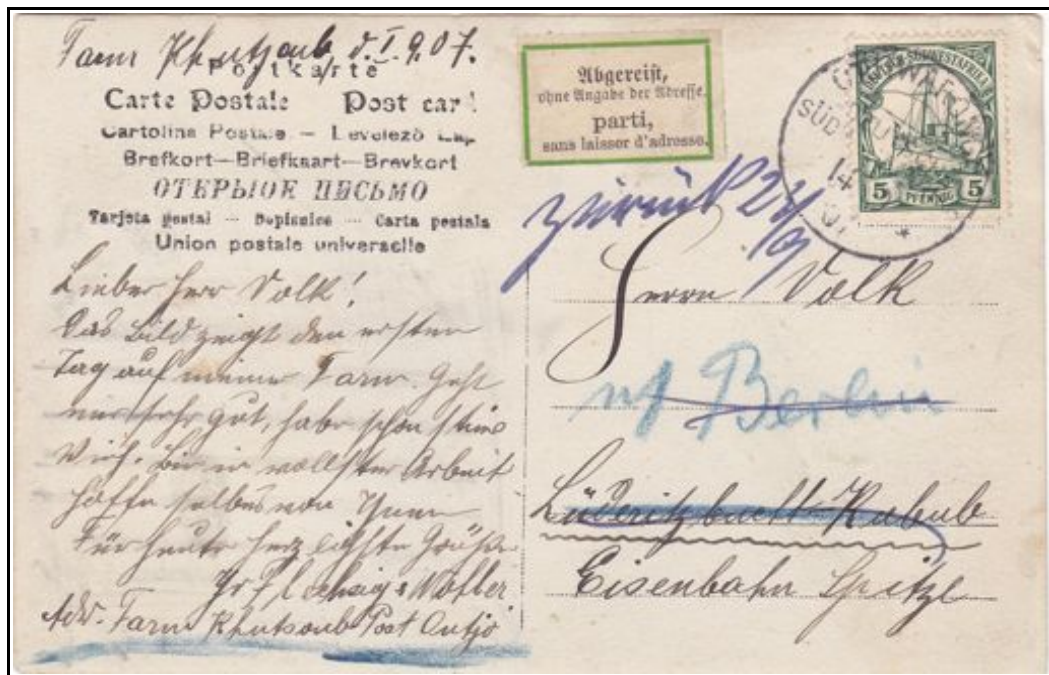 Farm Khutsaub d. 1.9.07.
Postkarte
Carte Postale Post car
Cartolina Postale – Levelező Lap
Brefkort–Briefkaart–Brevkort
ОТКРЫТОЕ ПИСЬМО
Tarjeta postal — Dopisnice — Carta postala
Union postale universelle
Lieber Herr Volk!
Das Bild zeigt den ersten
Tag auf meiner Farm. Geht
mir sehr gut, habe schon
Vieh. Bin in vollster Arbeit
hoffe selbes von Ihnen
Für heute herzlichste Grüße
Ihr
Adr. Farm Khutsaub Post Outjo
Abgereist,
ohne Angabe der Adresse.
parti,
sans laisser d'adresse.
zurück
SÜD
14
5 PFENNIG 5
Herrn Volk
Berlin
Lüderitzbucht-Kubub
Eisenbahn Spitze